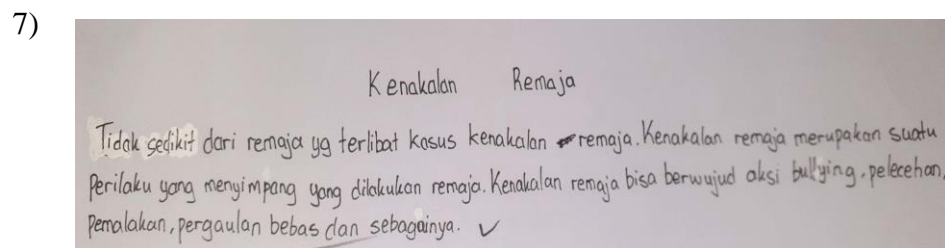 7)
Kenakalan Remaja
Tidak sedikit dari remaja yg terlibat kasus kenakalan remaja. Kenakalan remaja merupakan suatu
Perilaku yang menyimpang yang dilakukan remaja. Kenakalan remaja bisa berwujud aksi bullying, pelecehan,
Pemalakan, pergaulan bebas dan sebagainya. ✓